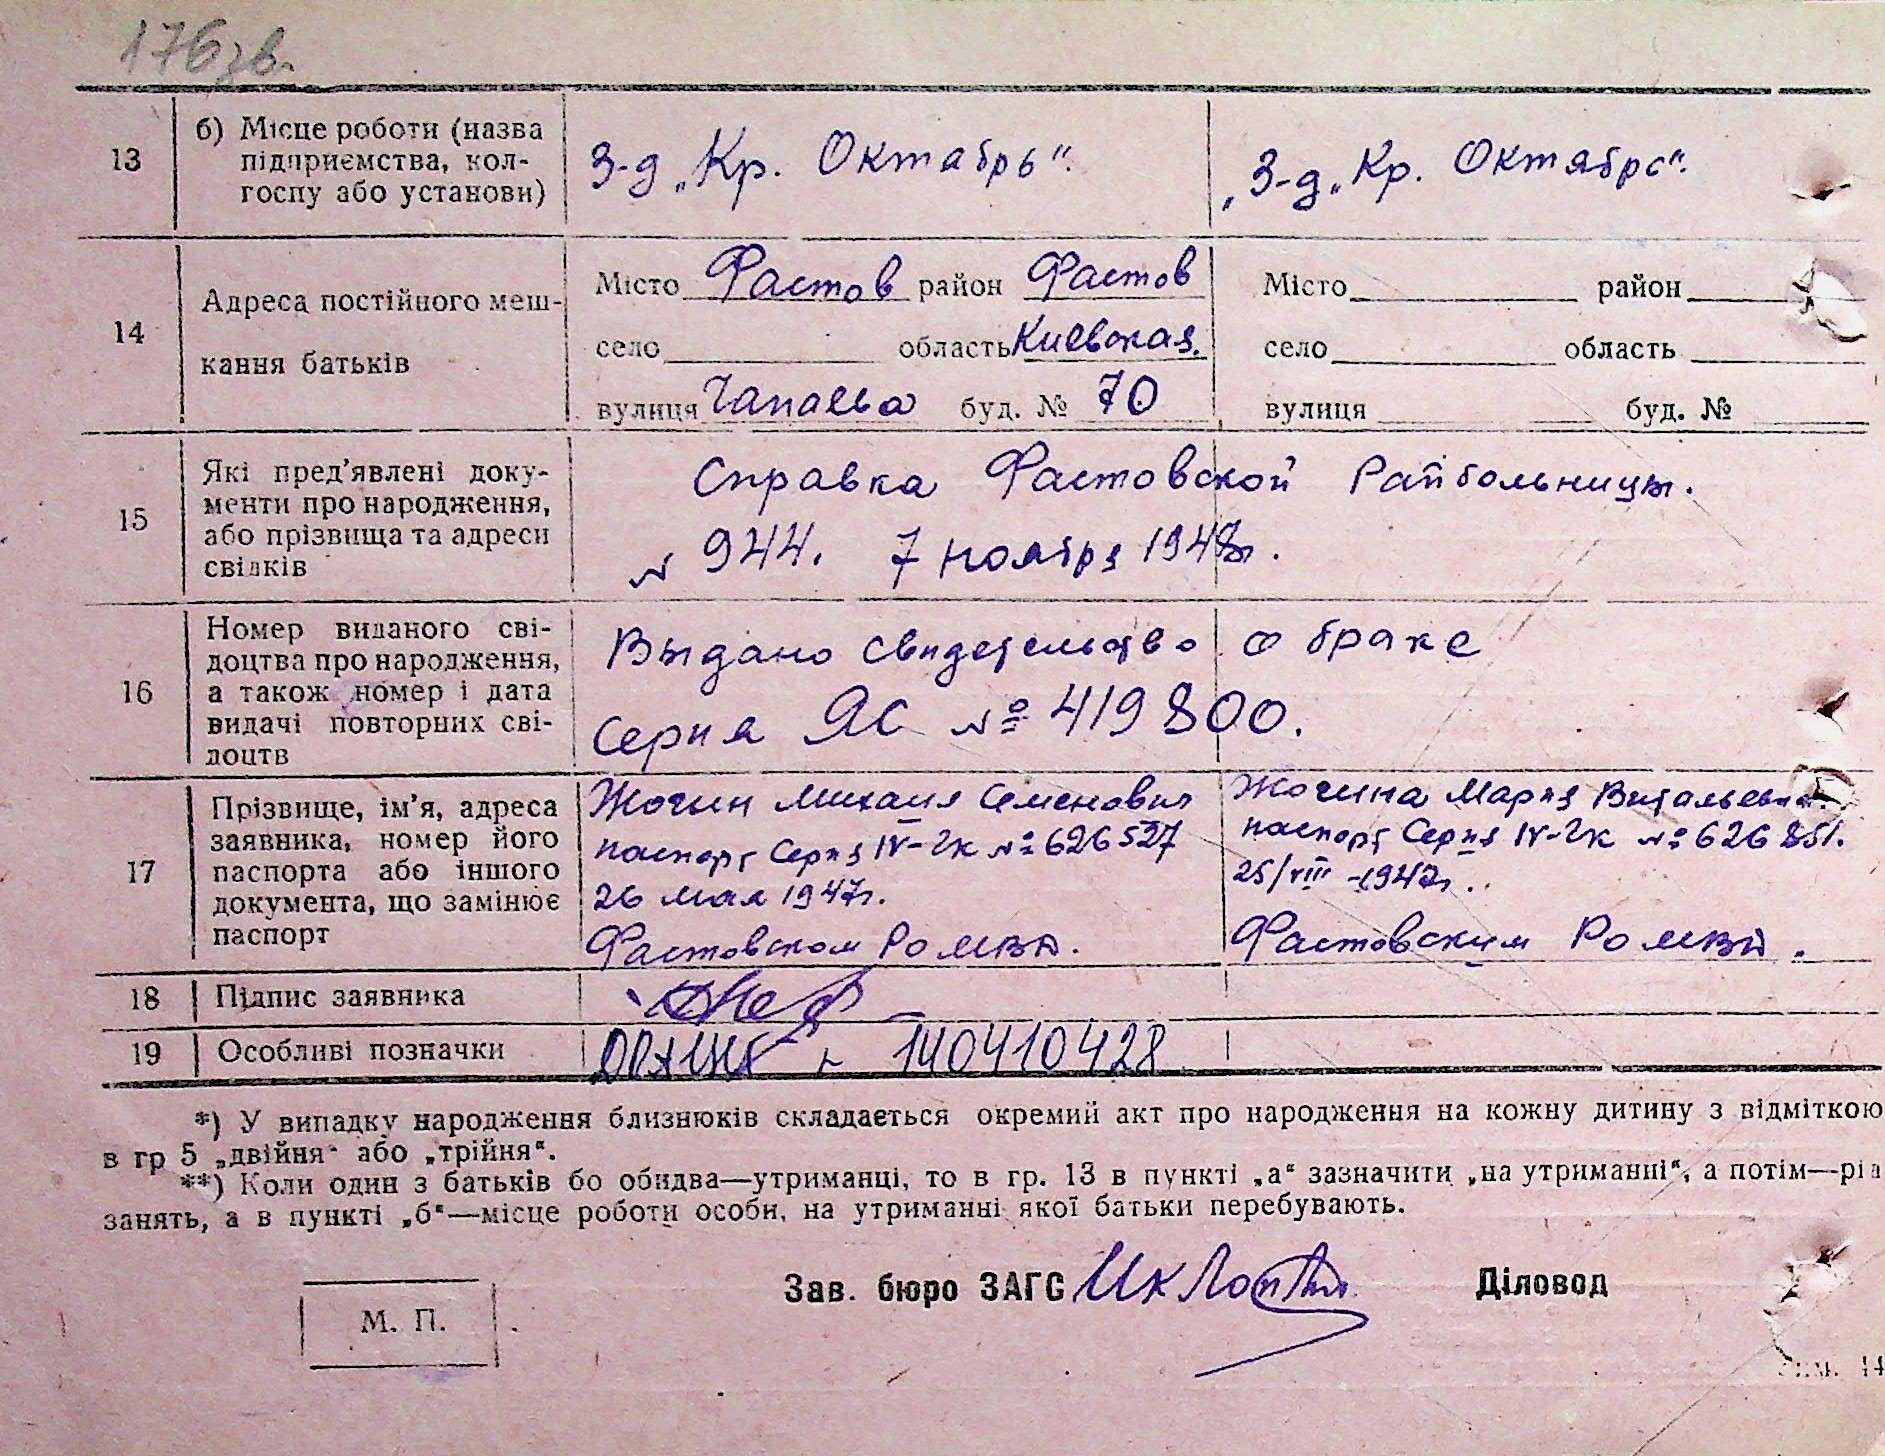 176 зв.
13
б) Місце роботи (назва
підприємства, кол-
госпу або установи)
З-д „Кр. Октябрь".
„З-д „Кр. Октябрь".
14
Адреса постійного меш-
кання батьків
Місто Фастов район Фастов
село область Киевская.
вулиця Чапаева буд. № 70
Місто район
село область
вулиця буд. №
15
Які пред'явлені доку-
менти про народження,
або прізвища та адреси
свідків
Справка Фастовской Райбольницы.
N 944. 7 ноября 1948г.
16
Номер виданого сві-
доцтва про народження,
а також номер і дата
видачі повторних сві-
доцтв
Выдано свидетельство о браке
Серия ЯС № 419800.
17
Прізвище, ім'я, адреса
заявника, номер його
паспорта або іншого
документа, що замінює
паспорт
Жогин Михаил Семенович
паспорт Серия IV-ЧК № 626527
26 мая 1947г.
Фастовском РО МВД.
Жогина Мария Витальевна.
паспорт Серия IV-ЧК № 626851.
25/VIII-1947г.
Фастовским РО МВД.
18
Підпис заявника
19
Особливі позначки
140410428
*) У випадку народження близнюків складається окремий акт про народження на кожну дитину з відміткою
в гр 5 „двійня" або „трійня".
**) Коли один з батьків бо обидва—утриманці, то в гр. 13 в пункті „а" зазначити „на утриманні", а потім—рід
занять, а в пункті „б"—місце роботи особи, на утриманні якої батьки перебувають.
Зав. бюро ЗАГС
Діловод
М. П.